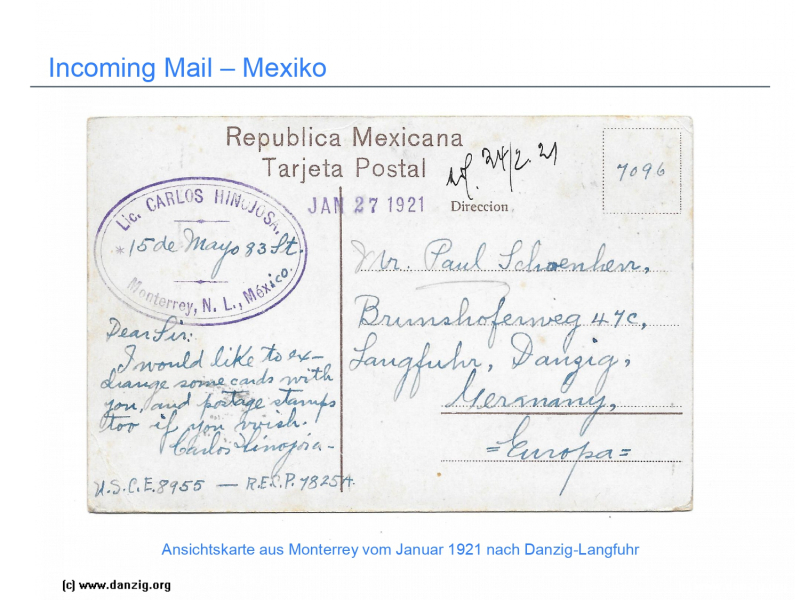 Incoming Mail – Mexiko
Republica Mexicana
Tarjeta Postal
24/2. 21
7096
JAN 27 1921
Direccion
Lic. CARLOS HINOJOSA.
* 15 de Mayo 83 St.
Monterrey, N. L., México.
Mr. Paul Schoenherr,
Brunshoferweg 47c,
Langfuhr, Danzig,
Germany,
=Europa=
Dear Sir:
I would like to ex-
change some cards with
you, and postage stamps
too if you wish.
Carlos Hinojosa-
U.S.C.E. 8955 — R.E.S.P. 7825A.
Ansichtskarte aus Monterrey vom Januar 1921 nach Danzig-Langfuhr
(c) www.danzig.org